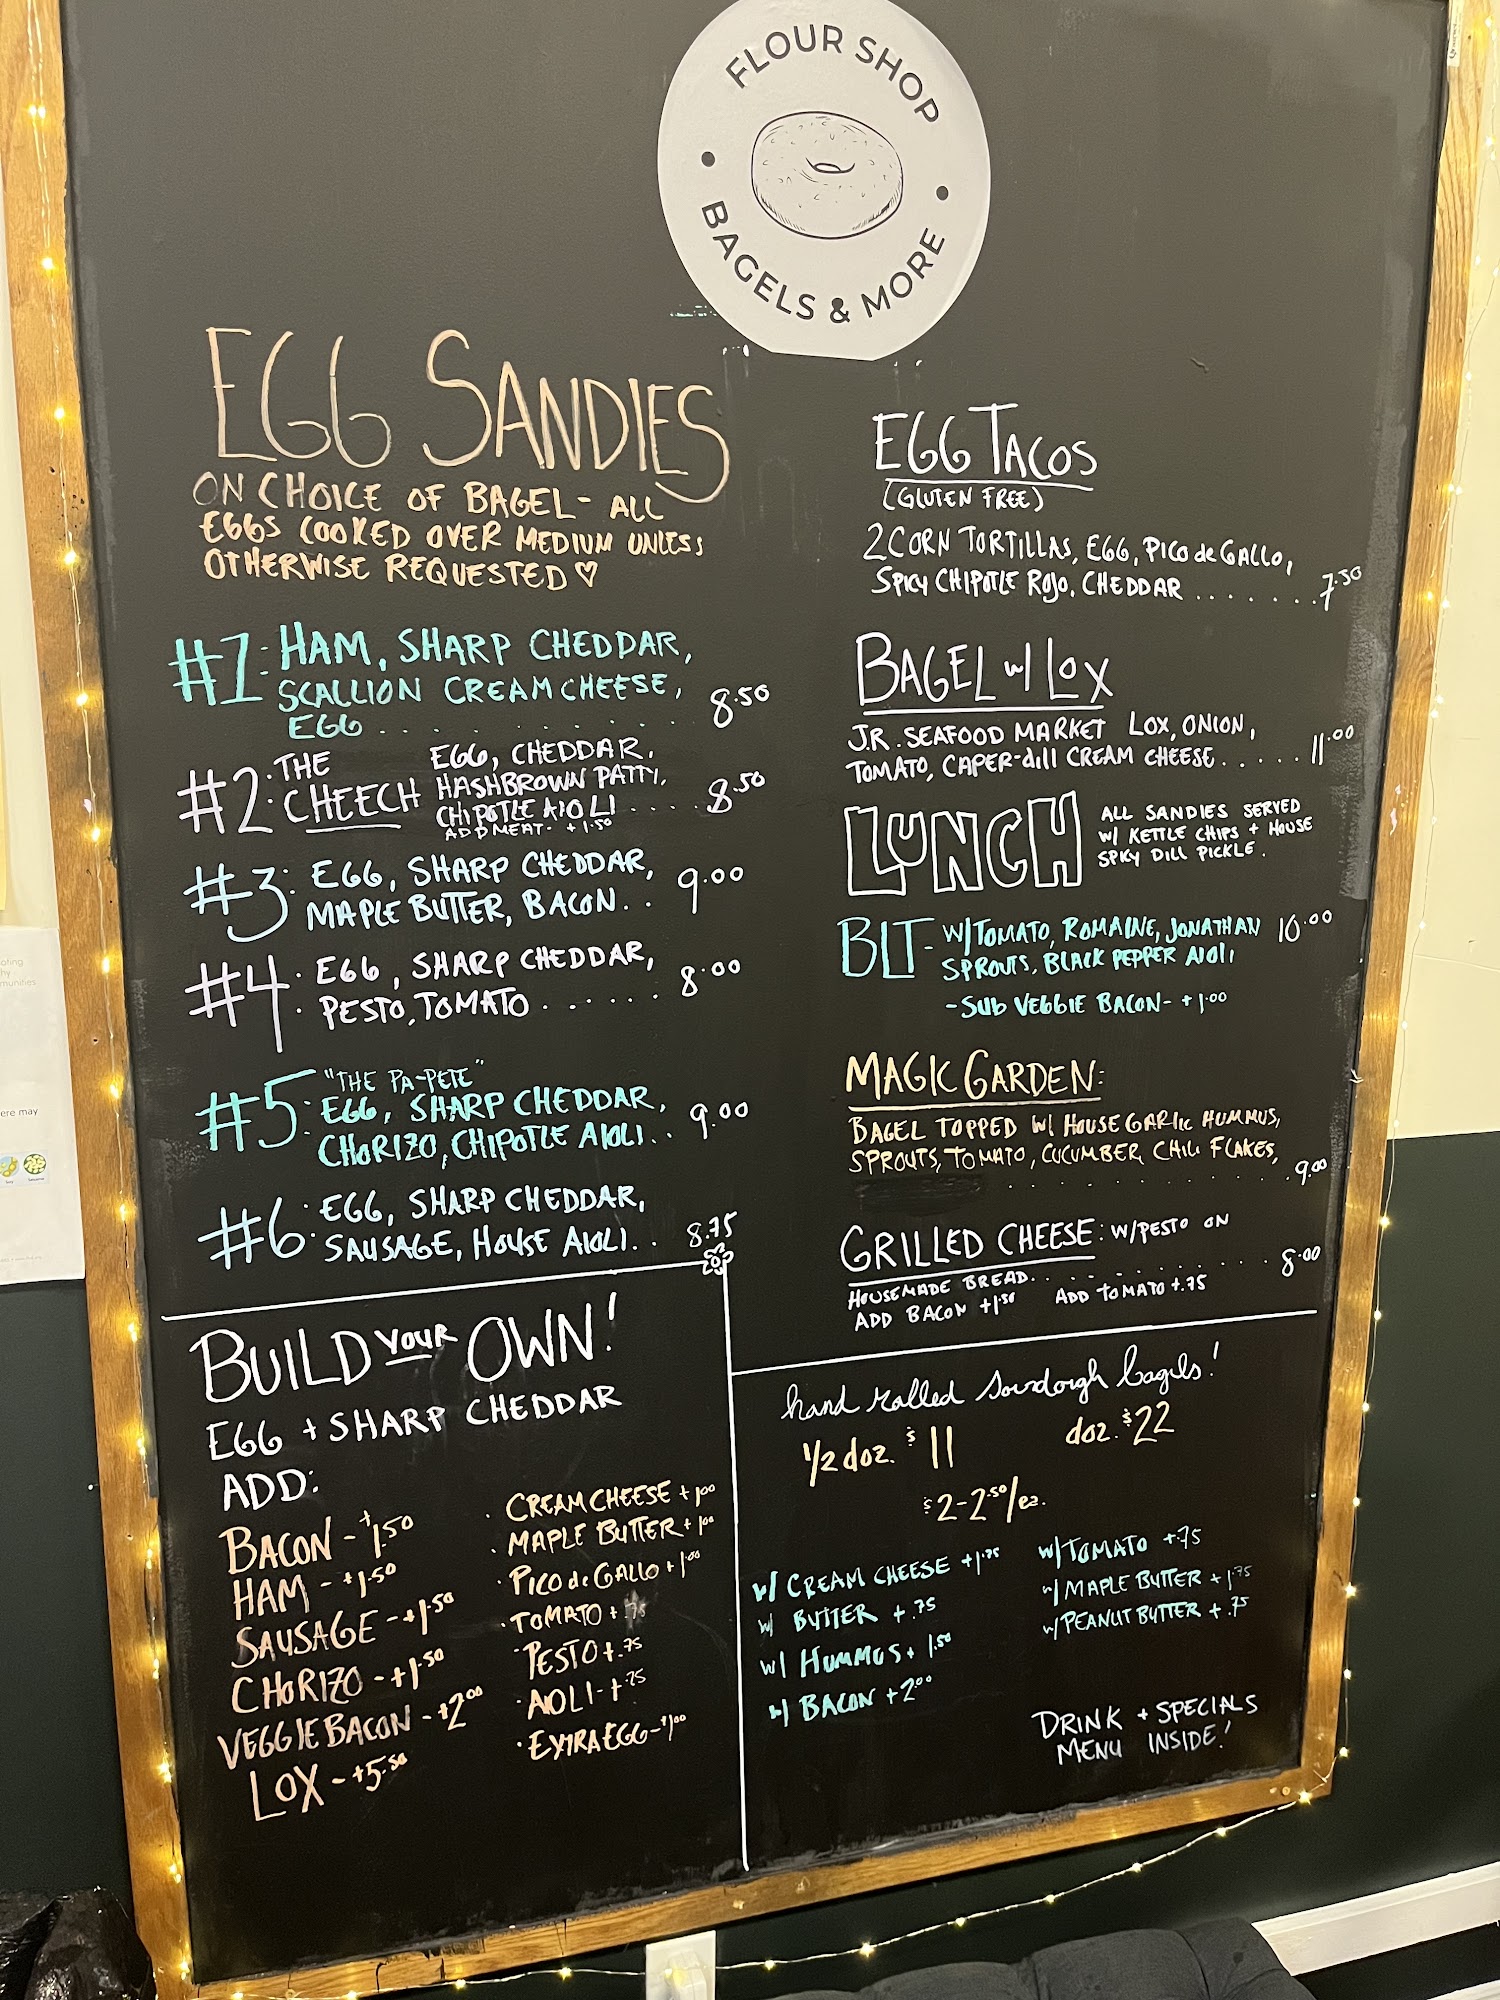 FLOUR SHOP
BAGELS & MORE
EGG SANDIES
ON CHOICE OF BAGEL - ALL
EGGS COOKED OVER MEDIUM UNLESS
OTHERWISE REQUESTED ♡
#1: HAM, SHARP CHEDDAR,
SCALLION CREAM CHEESE,
EGG . . . . . . . . . . 8.50
#2: THE CHEECH EGG, CHEDDAR,
HASHBROWN PATTY,
CHIPOTLE AIOLI . . . . 8.50
ADD MEAT - +1.50
#3: EGG, SHARP CHEDDAR,
MAPLE BUTTER, BACON . . 9.00
#4: EGG, SHARP CHEDDAR,
PESTO, TOMATO . . . . . . 8.00
"THE PA-PETE"
#5: EGG, SHARP CHEDDAR,
CHORIZO, CHIPOTLE AIOLI . . 9.00
#6: EGG, SHARP CHEDDAR,
SAUSAGE, HOUSE AIOLI . . 8.75
BUILD YOUR OWN!
EGG + SHARP CHEDDAR
ADD:
BACON - +1.50
HAM - +1.50
SAUSAGE - +1.50
CHORIZO - +1.50
VEGGIE BACON - +2.00
LOX - +5.50
· CREAM CHEESE +1.00
· MAPLE BUTTER +1.00
· PICO de GALLO +1.00
· TOMATO +.75
· PESTO +.75
· AIOLI - +.75
· EXTRA EGG - +1.00
EGG TACOS
(GLUTEN FREE)
2 CORN TORTILLAS, EGG, PICO de GALLO,
SPICY CHIPOTLE ROJO, CHEDDAR . . . . . . . 7.50
BAGEL w/ LOX
J.R. SEAFOOD MARKET LOX, ONION,
TOMATO, CAPER-dill CREAM CHEESE . . . . . 11.00
LUNCH
ALL SANDIES SERVED
W/ KETTLE CHIPS + HOUSE
SPICY DILL PICKLE.
BLT - W/TOMATO, ROMAINE, JONATHAN 10.00
SPROUTS, BLACK PEPPER AIOLI,
- SUB VEGGIE BACON - +1.00
MAGIC GARDEN:
BAGEL TOPPED W/ HOUSE GARLIC HUMMUS,
SPROUTS, TOMATO, CUCUMBER, CHILI FLAKES,
. . . . . . . . . . . . . 9.00
GRILLED CHEESE: W/PESTO ON
HOUSEMADE BREAD . . . . . . . . . . . . 8.00
ADD BACON +1.50 ADD TOMATO +.75
hand rolled sourdough bagels!
1/2 doz. $11 doz. $22
$2-2.50/ea.
w/ CREAM CHEESE +1.75
w/ BUTTER +.75
w/ HUMMUS +1.50
w/ BACON +2.00
w/TOMATO +.75
w/ MAPLE BUTTER +1.75
w/PEANUT BUTTER +.75
DRINK + SPECIALS
MENU INSIDE!